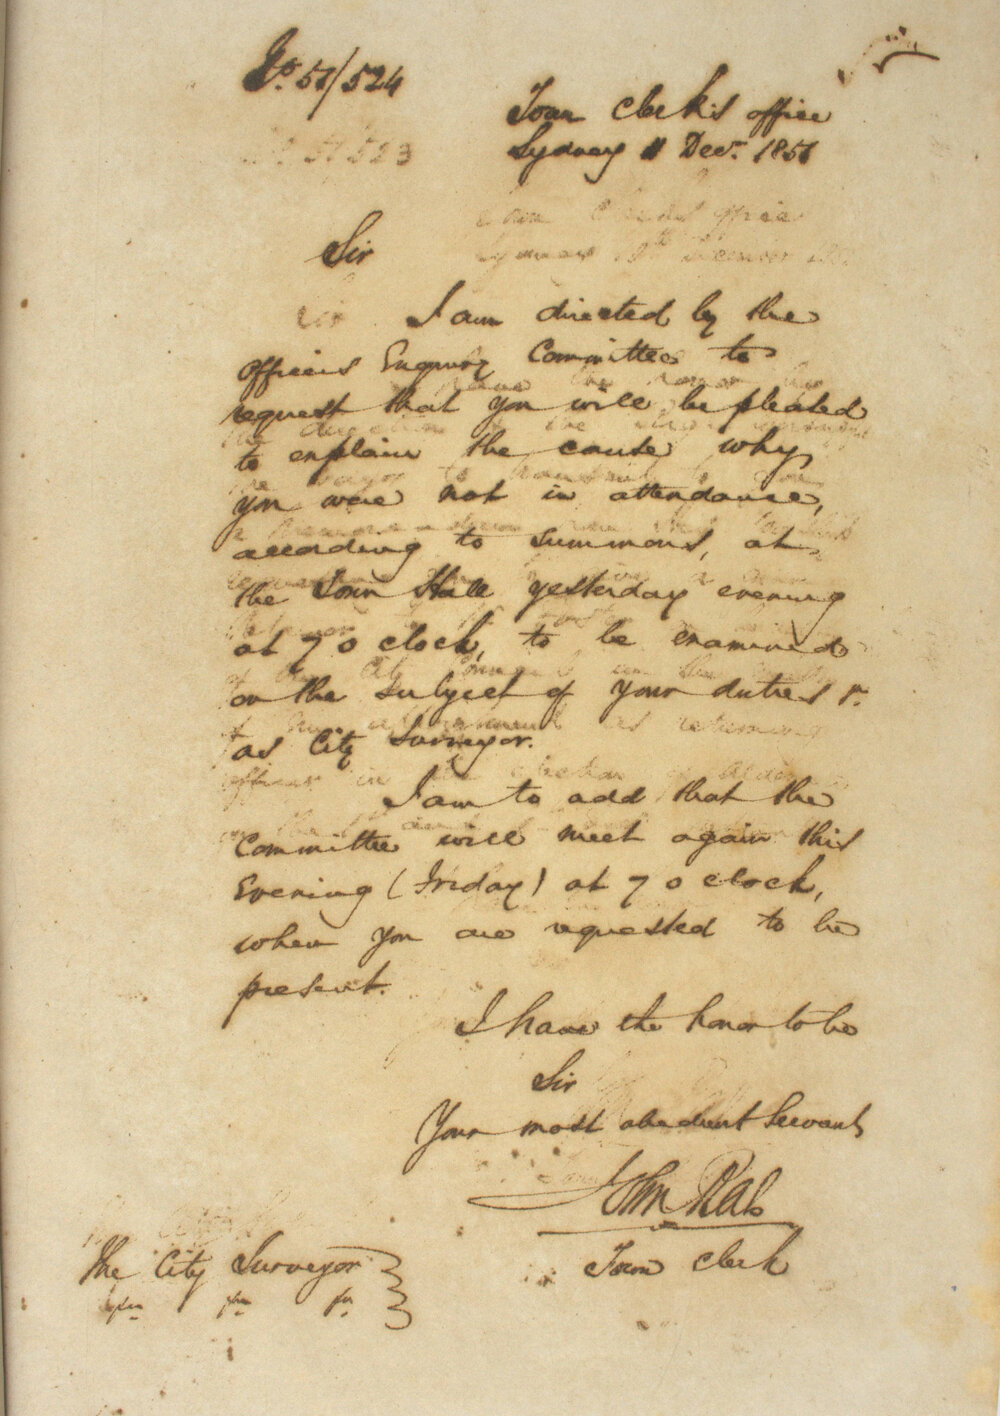 No. 51/524
Town Clerk's office
Sydney 11 Decr. 1851
Sir
I am directed by the
Officers Enquiry Committee to
request that you will be pleased
to explain the cause why
you were not in attendance,
according to summons, at
the Town Hall yesterday evening
at 7 o clock, to be examined
on the subject of your duties
as City Surveyor.
I am to add that the
Committee will meet again this
Evening (Friday) at 7 o clock,
when you are requested to be
present.
I have the honor to be
Sir
Your most obedient Servant
John Rae
Town Clerk
The City Surveyor